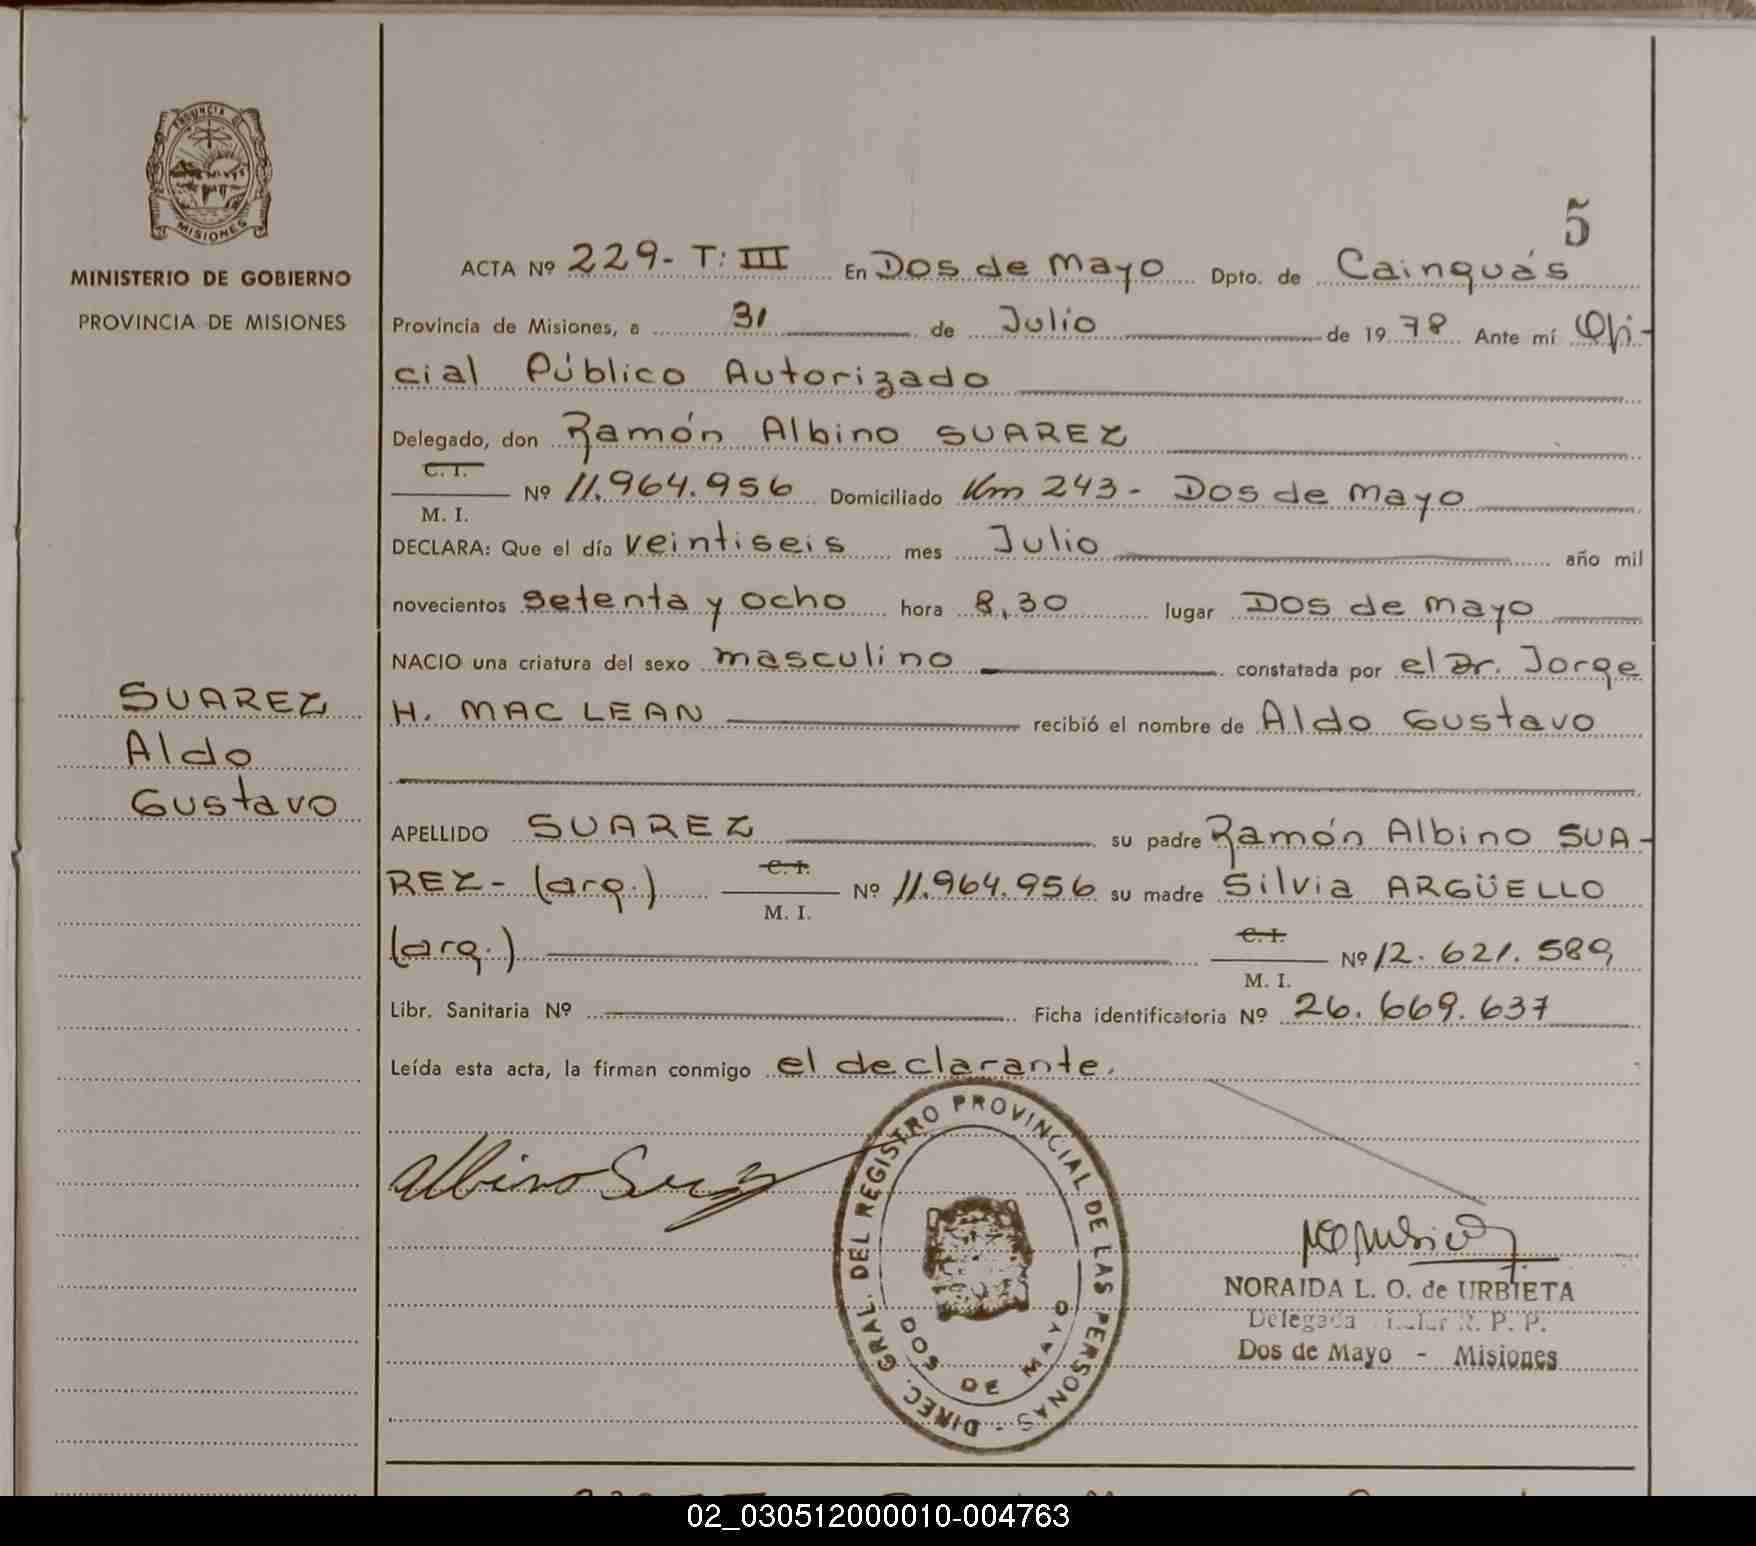 PROVINCIA DE
MISIONES
MINISTERIO DE GOBIERNO
PROVINCIA DE MISIONES
SUAREZ
Aldo
Gustavo
5
ACTA Nº 229- T: III En Dos de Mayo Dpto. de Cainguás
Provincia de Misiones, a 31 de Julio de 1978 Ante mí Ofi-
cial Público Autorizado
Delegado, don Ramón Albino SUAREZ
C. I.
M. I. Nº 11.964.956 Domiciliado Km 243 - Dos de Mayo
DECLARA: Que el día veintiseis mes Julio año mil
novecientos setenta y ocho hora 8,30 lugar Dos de Mayo
NACIO una criatura del sexo masculino constatada por el Dr. Jorge
H. MAC LEAN recibió el nombre de Aldo Gustavo
APELLIDO SUAREZ su padre Ramón Albino SUA-
REZ - (arg.) C. I. M. I. Nº 11.964.956 su madre Silvia ARGÜELLO
(arg.) C. I. M. I. Nº 12.621.589
Libr. Sanitaria Nº Ficha identificatoria Nº 26.669.637
Leída esta acta, la firman conmigo el declarante.
Albino Suarez
DIREC. GRAL. DEL REGISTRO PROVINCIAL DE LAS PERSONAS -
DOS DE MAYO
NORAIDA L. O. de URBIETA
Delegada R. P. P.
Dos de Mayo - Misiones
02_030512000010-004763